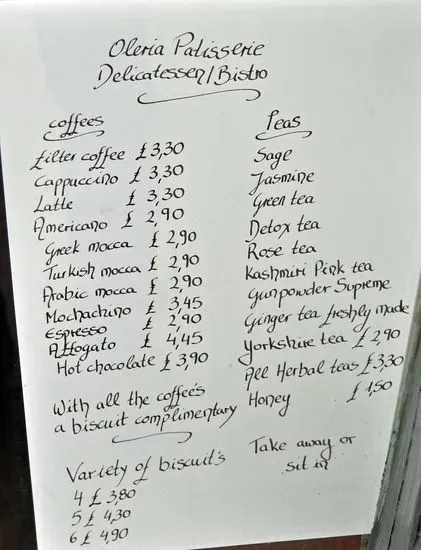 Oleria Patisserie
Delicatessen/Bistro
coffees
filter coffee £3,30
Cappuccino £ 3,30
Latte £ 3,30
Americano £ 2,90
Greek mocca £ 2,90
Turkish mocca £ 2,90
Arabic mocca £ 2,90
Mochachino £ 3,45
Espresso £ 2,90
Affogato £ 4,45
Hot chocolate £ 3,90
With all the coffee's
a biscuit complimentary
Variety of biscuit's
4 £ 3,80
5 £ 4,30
6 £ 4,90
Teas
Sage
Jasmine
Green tea
Detox tea
Rose tea
Kashmiri Pink tea
Gunpowder Supreme
Ginger tea freshly made
Yorkshire tea £ 2,90
All Herbal teas £3,30
Honey £ 1,50
Take away or
sit in